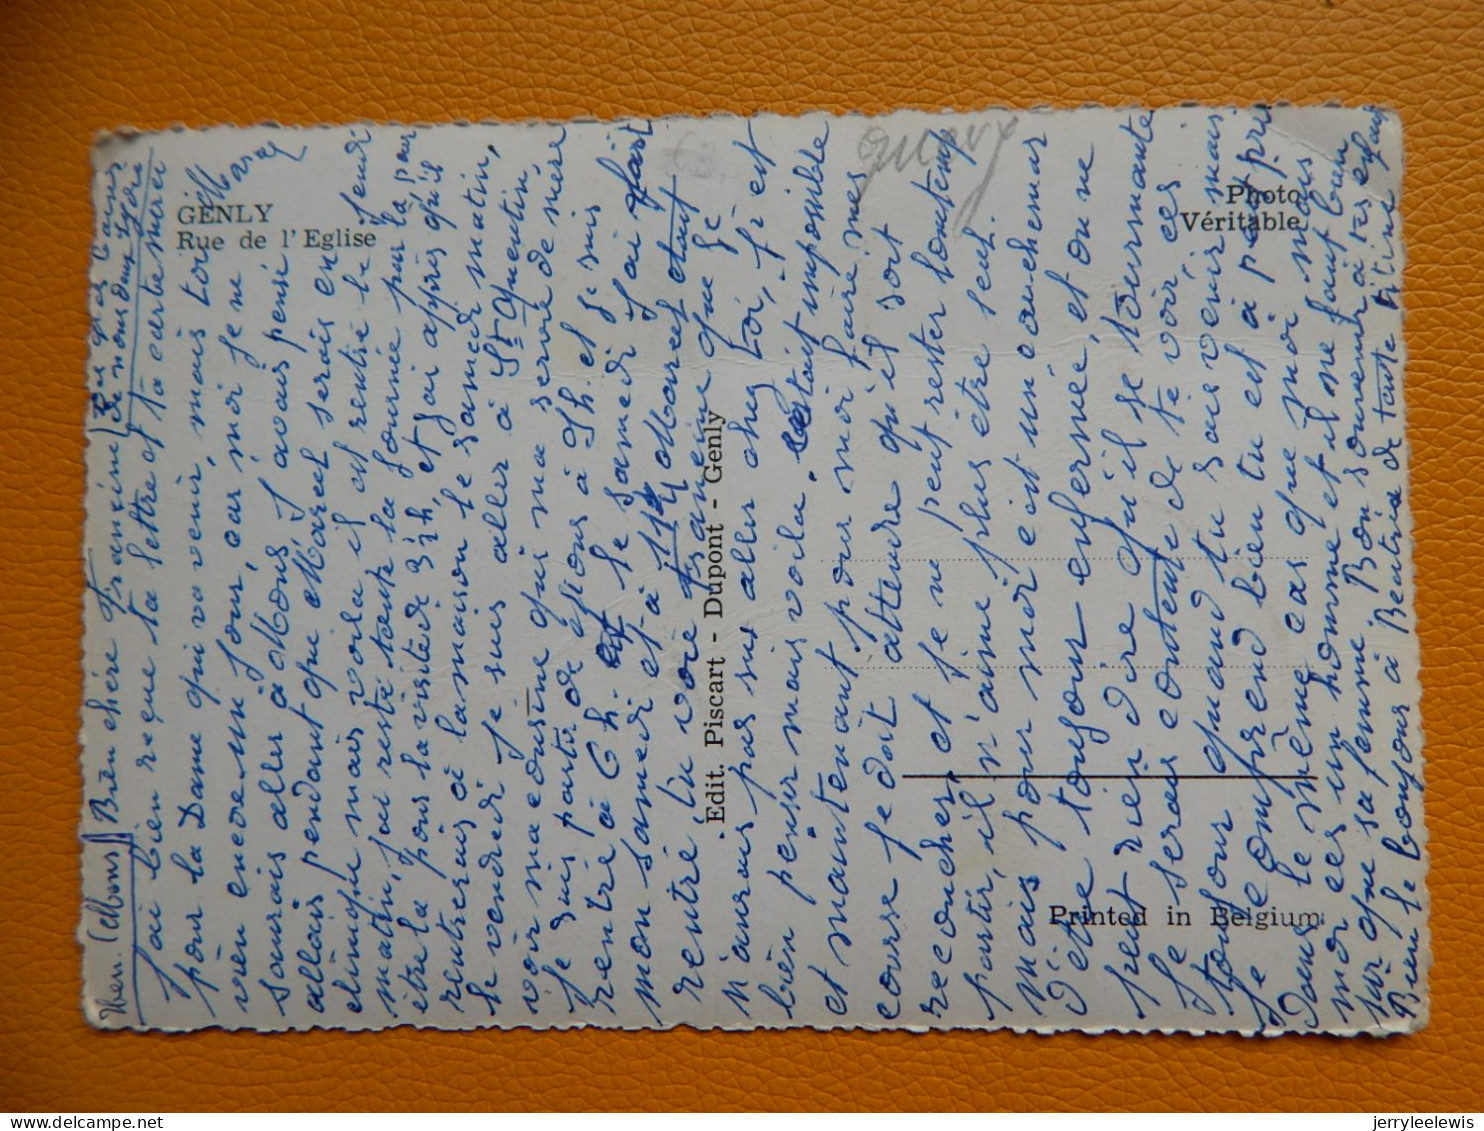 GENLY
Rue de l'Eglise
Photo
Véritable
Edit. Piscart - Dupont - Genly
Printed in Belgium
Quévy
Bien chère Francine
de nous deux Lydie
J'ai bien reçue ta lettre et ta carte
pour la Dame qui va venir, mais toi
vien encore un jour, car moi je ne
saurais aller à Mons, j'avais pensé
allais pendant que Marcel serais en
clinique mais voila il est rentré le jeudi
matin, j'ai resté toute la journée pour
être la pour la visite di 3½h, et j'ai après qu'il
rentrerais à la maison le samedi matin,
le vendredi je suis aller à St Quentin,
voir ma cousine qui m'a servie de mère
Je suis partie de à 9h. et je suis
rentré à 6h. le samedi j'ai fait
mon samedi et à Marcel etait
rentré tu voie Francine que je
n'aurais pas su aller chez toi, si est
bien penser mais voila. c'etait impossible
et maintenant pour moi faire mes
course je doit attendre qu'il soit
recoucher, et je ne peut rester lontemp
partir, il n'aime plus être seul.
mais pour moi c'est un cauchemar
d'être toujour enfermée, et on ne
peut rien dire qu'il se tourmante
Je serais contente de te voir, ces
toujour quand tu sais venir mais
Je comprend bien tu est à peu pri
dans le même cas que moi mais
moi ces un homme et il ne faut bien
sur que sa femme Bon souvenir à tes enfant
Bien le bonjour à Béatrice de tante Titine